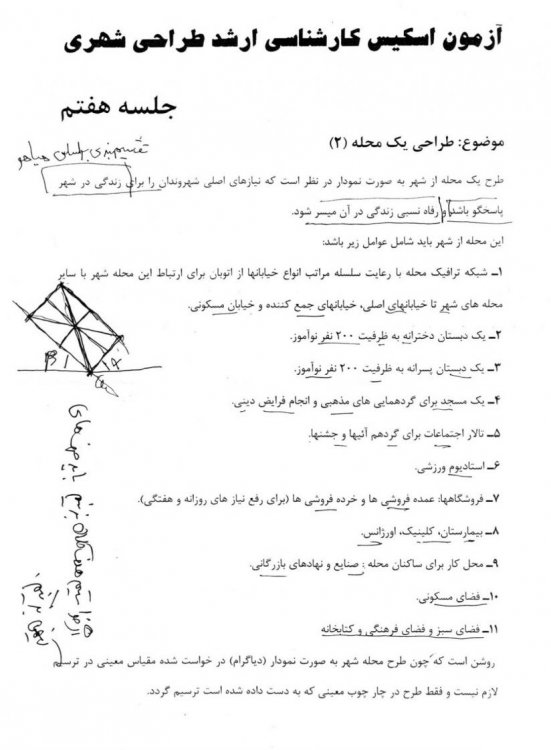 آزمون اسکیس کارشناسی ارشد طراحی شهری
جلسه هفتم
موضوع: طراحی یک محله (۲)
تقسیم بندی براساس هیاهو
طرح یک محله از شهر به صورت نمودار در نظر است که نیازهای اصلی شهروندان را برای زندگی در شهر
پاسخگو باشد و رفاه نسبی زندگی در آن میسر شود.
این محله از شهر باید شامل عوامل زیر باشد:
۱ـ شبکه ترافیک محله با رعایت سلسله مراتب انواع خیابانها از اتوبان برای ارتباط این محله شهر با سایر
محله های شهر تا خیابانهای اصلی، خیابانهای جمع کننده و خیابان مسکونی.
۲ـ یک دبستان دخترانه به ظرفیت ۲۰۰ نفر نوآموز.
۳ـ یک دبستان پسرانه به ظرفیت ۲۰۰ نفر نوآموز.
۴ـ یک مسجد برای گردهمایی های مذهبی و انجام فرایض دینی.
۵ـ تالار اجتماعات برای گردهم آئیها و جشنها.
۶ـ استادیوم ورزشی.
۷ـ فروشگاهها: عمده فروشی ها و خرده فروشی ها (برای رفع نیاز های روزانه و هفتگی).
۸ـ بیمارستان، کلینیک، اورژانس.
۹ـ محل کار برای ساکنان محله : صنایع و نهادهای بازرگانی.
۱۰ـ فضای مسکونی.
۱۱ـ فضای سبز و فضای فرهنگی و کتابخانه
روشن است که چون طرح محله شهر به صورت نمودار (دیاگرام) در خواست شده مقیاس معینی در ترسیم
لازم نیست و فقط طرح در چار چوب معینی که به دست داده شده است ترسیم گردد.